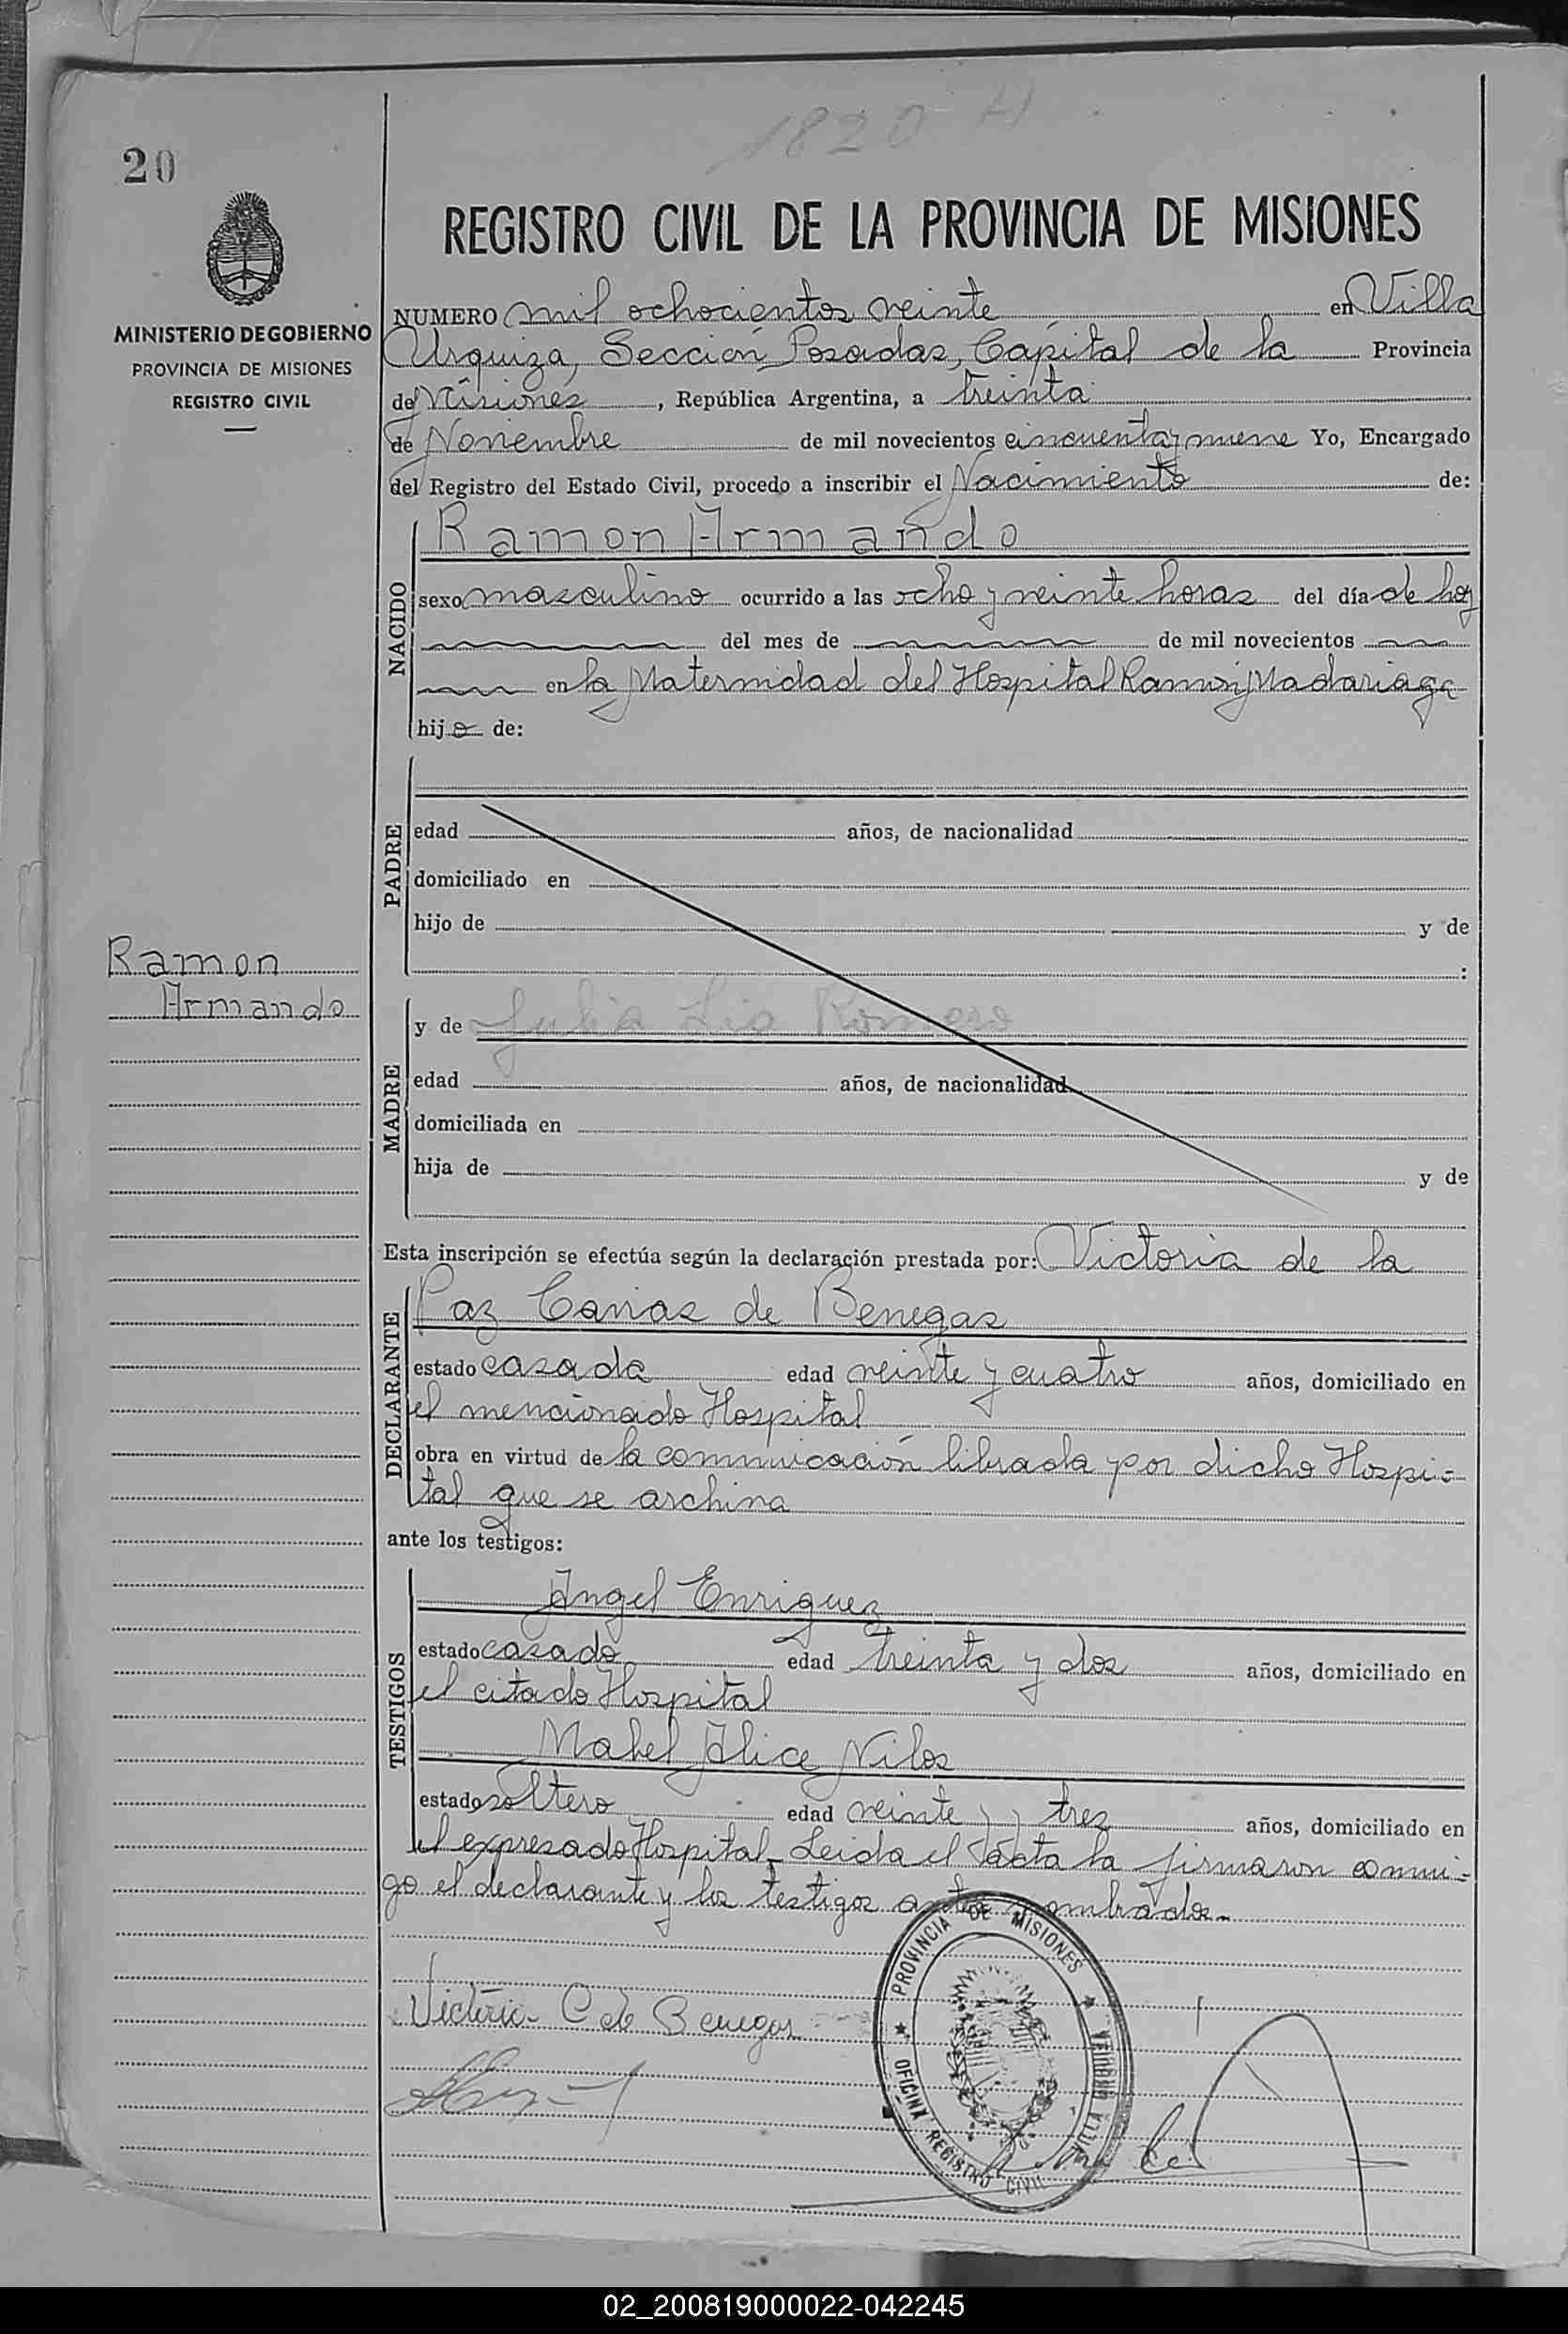 1820 H
20
REGISTRO CIVIL DE LA PROVINCIA DE MISIONES
MINISTERIO DE GOBIERNO
PROVINCIA DE MISIONES
REGISTRO CIVIL
NUMERO mil ochocientos veinte en Villa
Urquiza, Sección Posadas, Capital de la Provincia
de Misiones, República Argentina, a treinta
de Noviembre de mil novecientos cincuenta y nueve Yo, Encargado
del Registro del Estado Civil, procedo a inscribir el Nacimiento de:
NACIDO
Ramon Armando
sexo masculino ocurrido a las ocho y veinte horas del día de hoy
del mes de de mil novecientos
en la Maternidad del Hospital Ramón Madariaga
hijo de:
PADRE
edad años, de nacionalidad
domiciliado en
hijo de y de
:
Ramon
Armando
MADRE
y de Julia Lia Romero
edad años, de nacionalidad
domiciliada en
hija de y de
Esta inscripción se efectúa según la declaración prestada por: Victoria de la
DECLARANTE
Paz de Benegas
estado casada edad veinte y cuatro años, domiciliado en
el mencionado Hospital
obra en virtud de la comunicación librada por dicho Hospi-
tal que se archiva
ante los testigos:
TESTIGOS
Angel Enriquez
estado casado edad treinta y dos años, domiciliado en
el citado Hospital
Mabel Alice
estado soltero edad veinte y tres años, domiciliado en
el expresado Hospital. Leida el acta la firmaron conmi-
go el declarante y los testigos antes nombrados.-
Victoria C de Benegas
PROVINCIA DE MISIONES
OFICINA REGISTRO CIVIL
VILLA URQUIZA
02_200819000022-042245